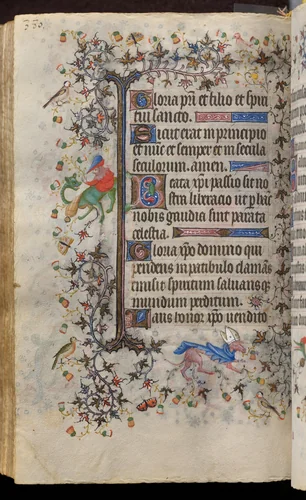 330
Gloria pri et filio et spiri
tui sancto.
Sicut erat in principio
et nuc et semper et in secula
seculorum. amen.
Beata xpi passio sit no
stra liberacio ut p hac
nobis gaudia sint parata
celestia.
Gloria xpo domino qui
pendens in patibulo clamās
emisit spiritum saluans q
mundum perditum.
Laus honor xpo vendito